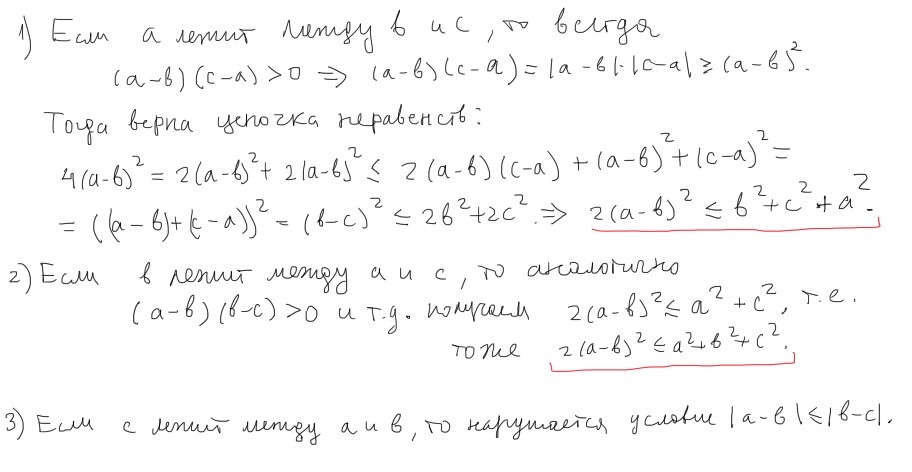 1) Если a лежит между b и c, то всегда
(a-b)(c-a) > 0 ⇒ (a-b)(c-a) = |a-b|·|c-a| ≥ (a-b)².
Тогда верна цепочка неравенств:
4(a-b)² = 2(a-b)² + 2(a-b)² ≤ 2(a-b)(c-a) + (a-b)² + (c-a)² =
= ((a-b)+(c-a))² = (b-c)² ≤ 2b²+2c². ⇒ 2(a-b)² ≤ b²+c²+a².
2) Если b лежит между a и c, то аналогично
(a-b)(b-c) > 0 и т.д. получаем 2(a-b)² ≤ a²+c², т.е.
тоже 2(a-b)² ≤ a²+b²+c².
3) Если c лежит между a и b, то нарушается условие |a-b| ≤ |b-c|.